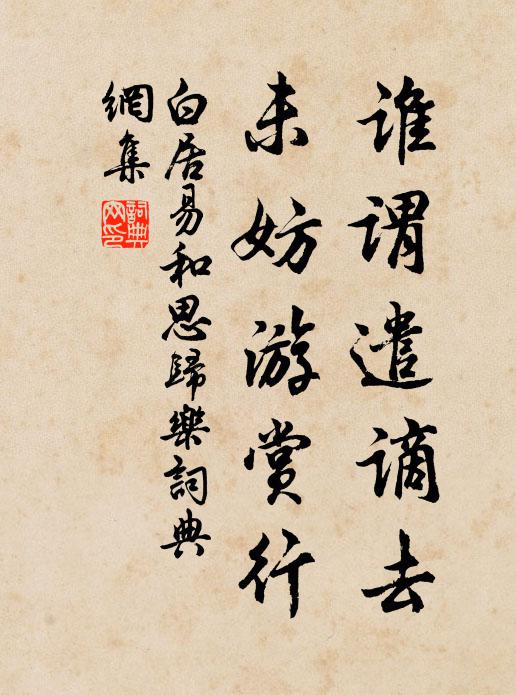 谁謂遣謫去
未妨游賞行
白居易和思歸樂詞典
網集
詞典
网印